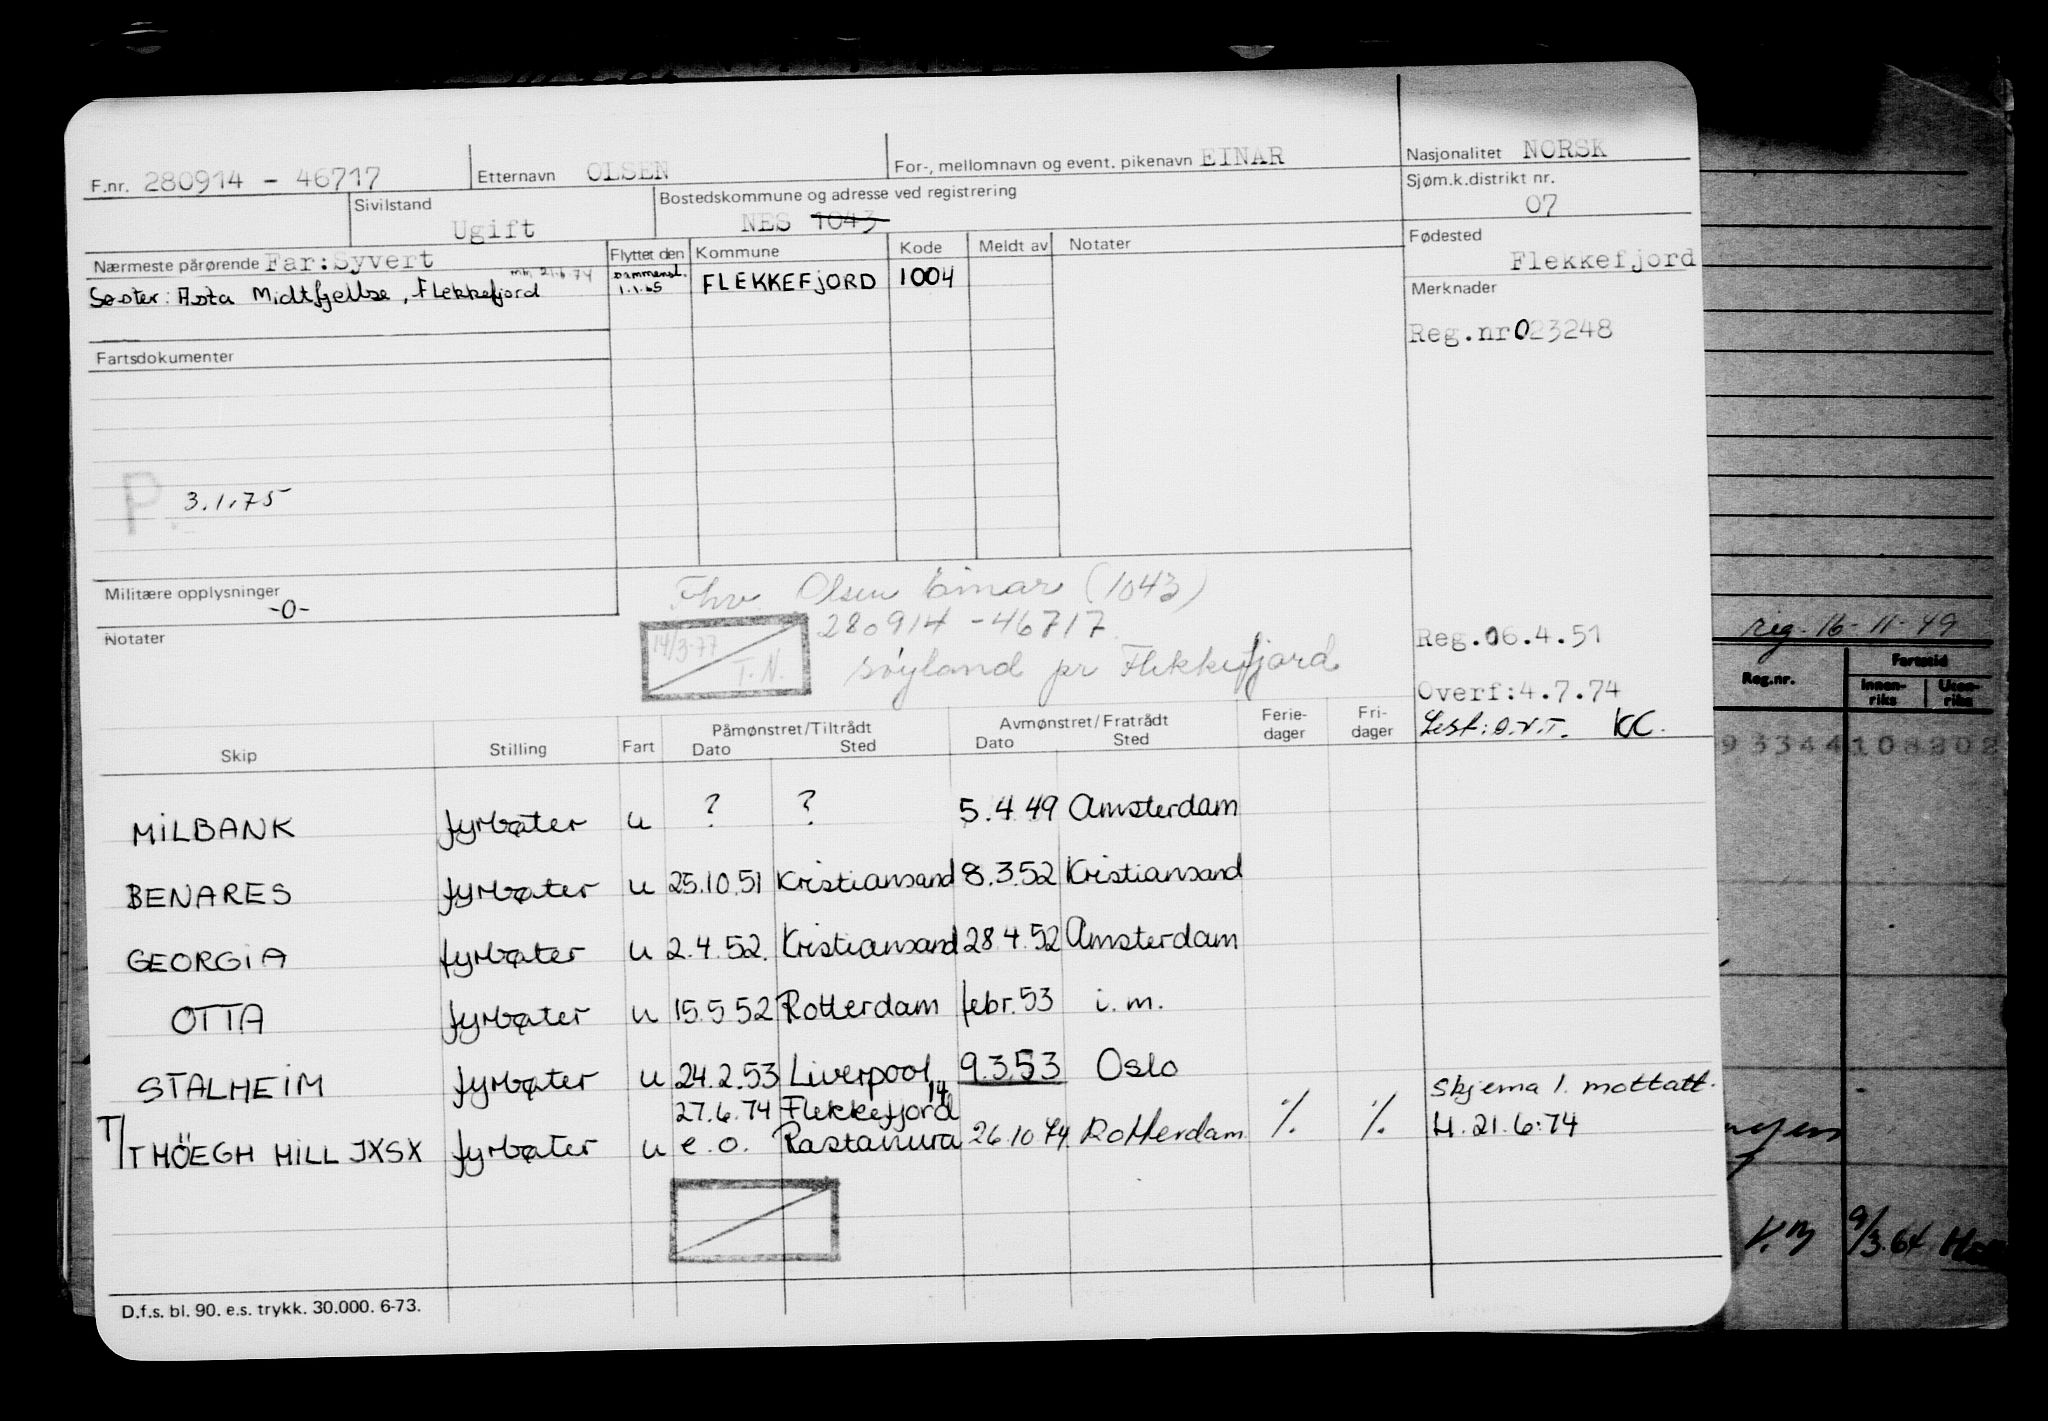 F.nr. 280914 - 46717 Etternavn OLSEN For-, mellomnavn og event. pikenavn EINAR Nasjonalitet NORSK
Sivilstand Ugift Bostedskommune og adresse ved registrering NES 1043 Sjøm.k.distrikt nr. 07
Nærmeste pårørende Far: Syvert Flyttet den Kommune Kode Meldt av Notater Fødested Flekkefjord
21.6.74
Søster: Asta Midtfjellse, Flekkefjord sammensl. 1.1.65 FLEKKEFJORD 1004 Merknader
Reg.nr 023248
Fartsdokumenter
P. 3.1.75
Militære opplysninger -0-
Fhv. Olsen Einar (1043)
280914 - 46717
Søyland pr Flekkefjord
14/3-77 T.N.
Notater
Reg. 06.4.51
Overf: 4.7.74
Sest: O.V.T. KC.
Skip Stilling Fart Påmønstret/Tiltrådt Dato Sted Avmønstret/Fratrådt Dato Sted Ferie-dager Fri-dager
MILBANK fyrbøter u ? ? 5.4.49 Amsterdam
BENARES fyrbøter u 25.10.51 Kristiansand 8.3.52 Kristiansand
GEORGIA fyrbøter u 2.4.52. Kristiansand 28.4.52 Amsterdam
OTTA fyrbøter u 15.5 52 Rotterdam febr. 53 i.m.
STALHEIM fyrbøter u 24.2.53 Liverpool 9.3.53 Oslo
27.6.74 Flekkefjord 14
T/T HÖEGH HILL JXSX fyrbøter u e.o. Rastanura 26.10 74 Rotterdam % %
Skjema 1. mottatt.
H. 21.6.74
D.f.s. bl. 90. e.s. trykk. 30.000. 6-73.
reg. 16-11-49
Reg.nr.
Fartstid
Innen-riks Uten-riks
93344108202
9/3.64